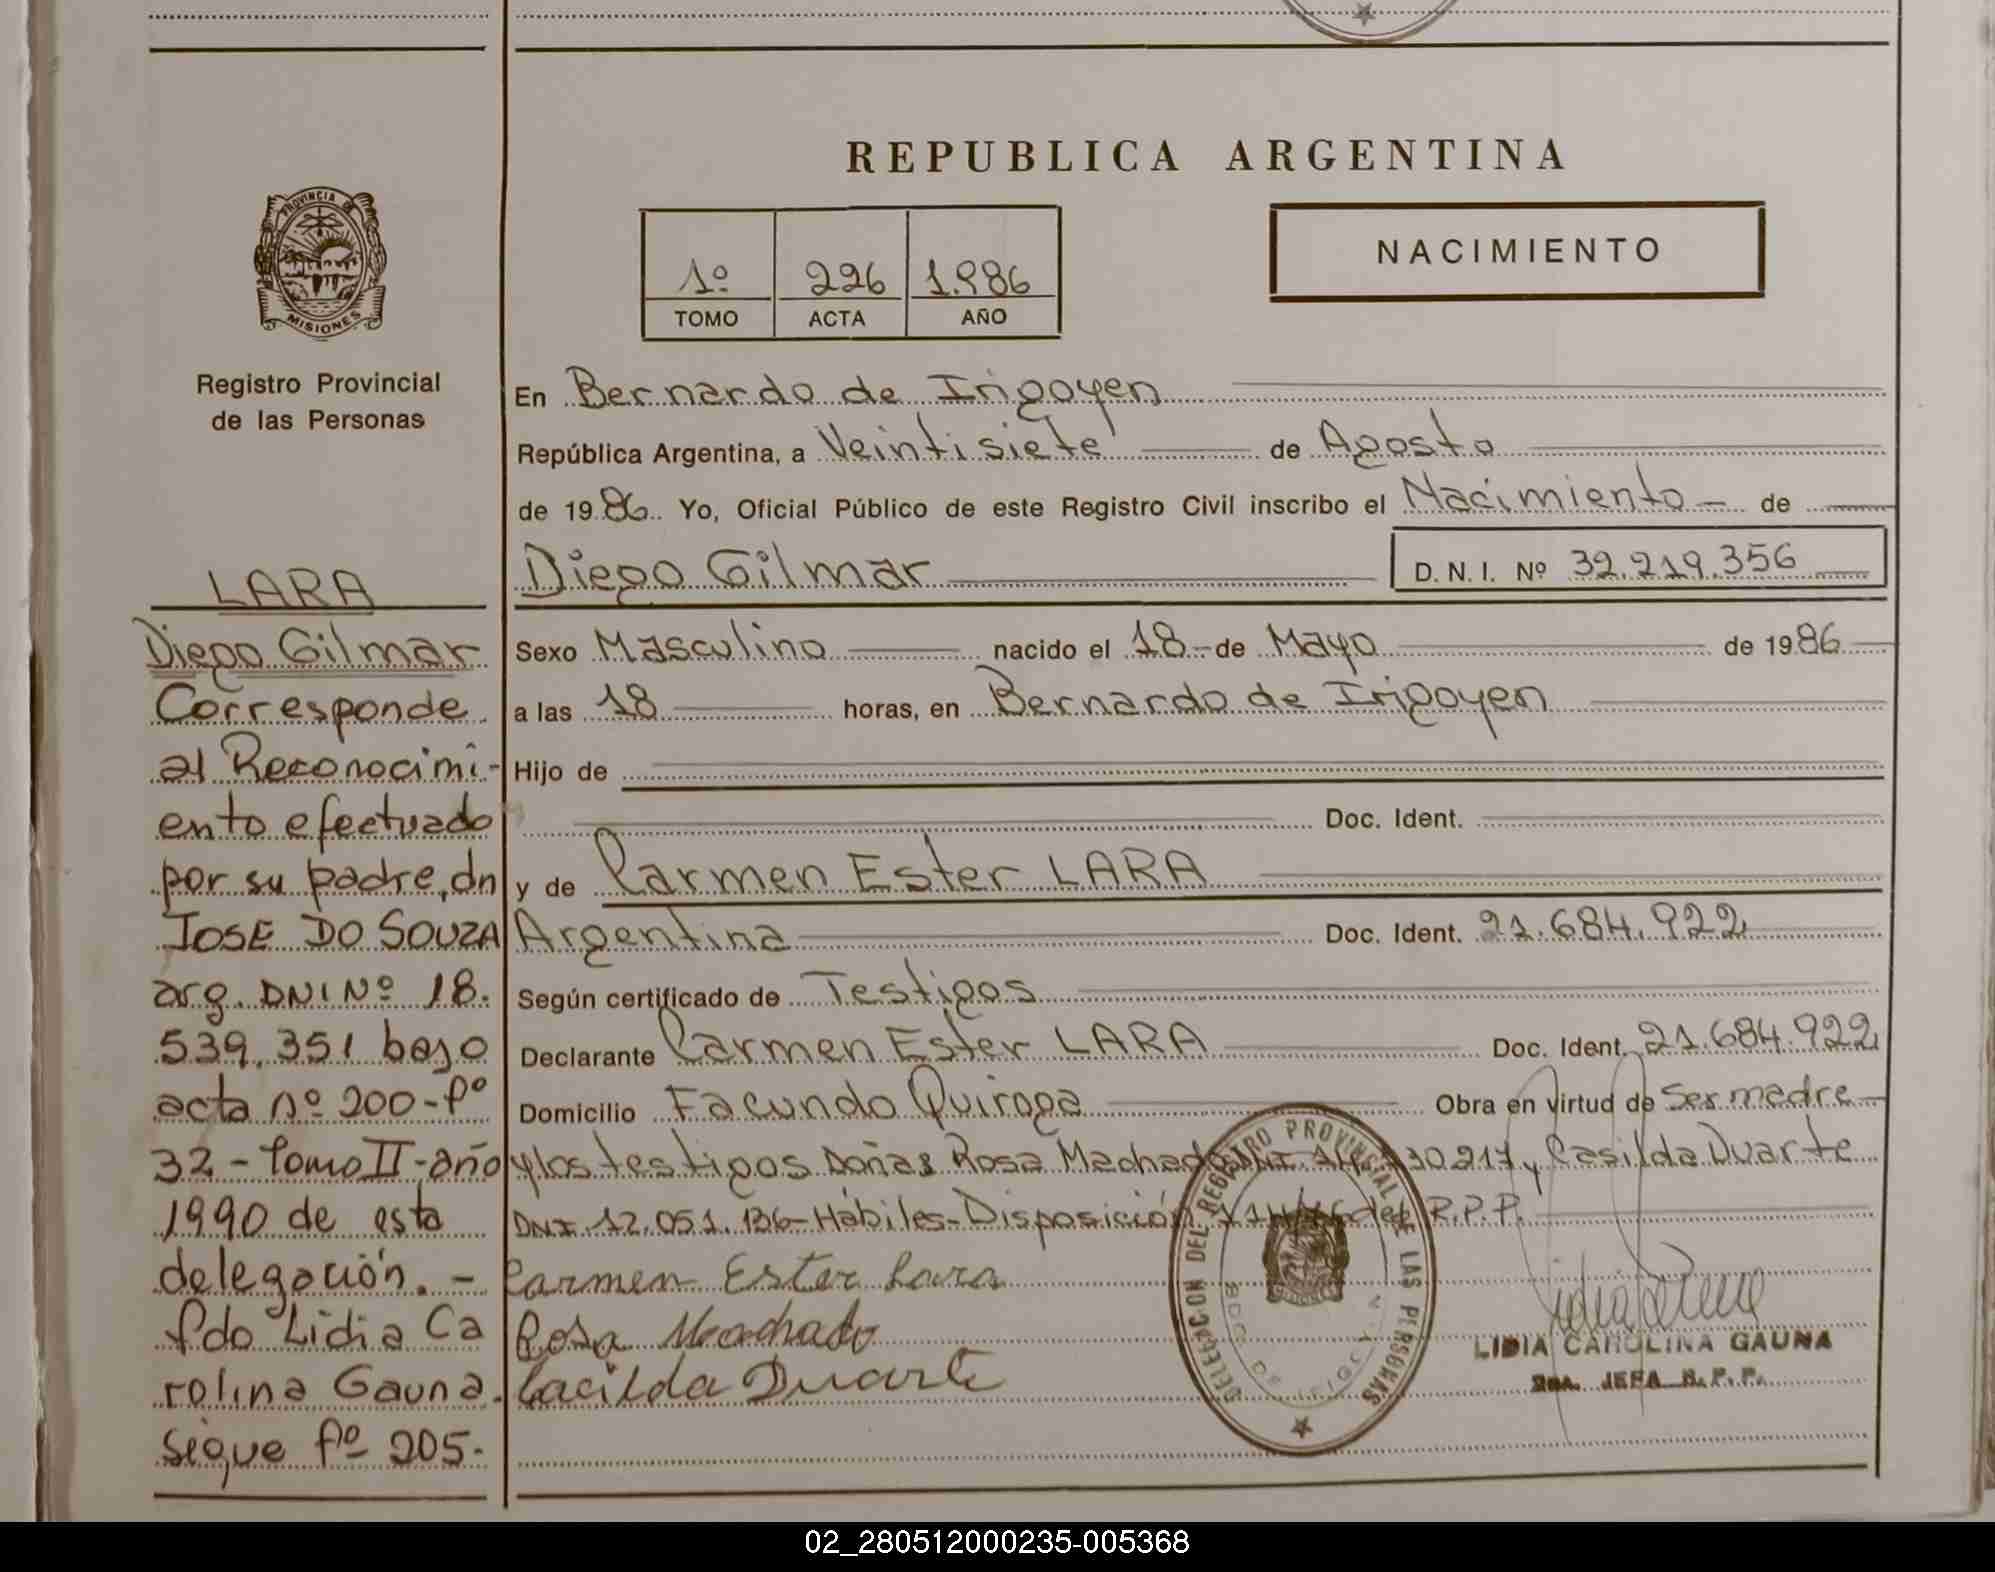 REPUBLICA ARGENTINA
PROVINCIA DE
MISIONES
Registro Provincial
de las Personas
1º 226 1.986
TOMO ACTA AÑO
NACIMIENTO
En Bernardo de Irigoyen
República Argentina, a Veintisiete de Agosto
de 1986. Yo, Oficial Público de este Registro Civil inscribo el Nacimiento de
Diego Gilmar D. N. I. Nº 32.219.356
Sexo Masculino nacido el 18 de Mayo de 1986
a las 18 horas, en Bernardo de Irigoyen
Hijo de
Doc. Ident.
y de Carmen Ester LARA
Argentina Doc. Ident. 21.684.922
Según certificado de Testigos
Declarante Carmen Ester LARA Doc. Ident. 21.684.922
Domicilio Facundo Quiroga Obra en virtud de Ser madre
y los testigos Doñas Rosa Machado DNI y Casilda Duarte
DNI. 12.051.136- Hábiles- Disposición del R.P.P.
Carmen Ester Lara
Rosa Machado
Cacilda Duarte
DELEGACION DEL REGISTRO PROVINCIAL DE LAS PERSONAS
BDO. DE IRIGOYEN
LIDIA CAROLINA GAUNA
JEFA R.P.P.
LARA
Diego Gilmar
Corresponde
al Reconocimi-
ento efectuado
por su padre, dn
JOSE DO SOUZA
arg. DNI Nº 18.
539.351 bajo
acta nº 200-fº
32-Tomo II-año
1990 de esta
delegación.-
fdo Lidia Ca
rolina Gauna.
sigue fº 205-
02_280512000235-005368